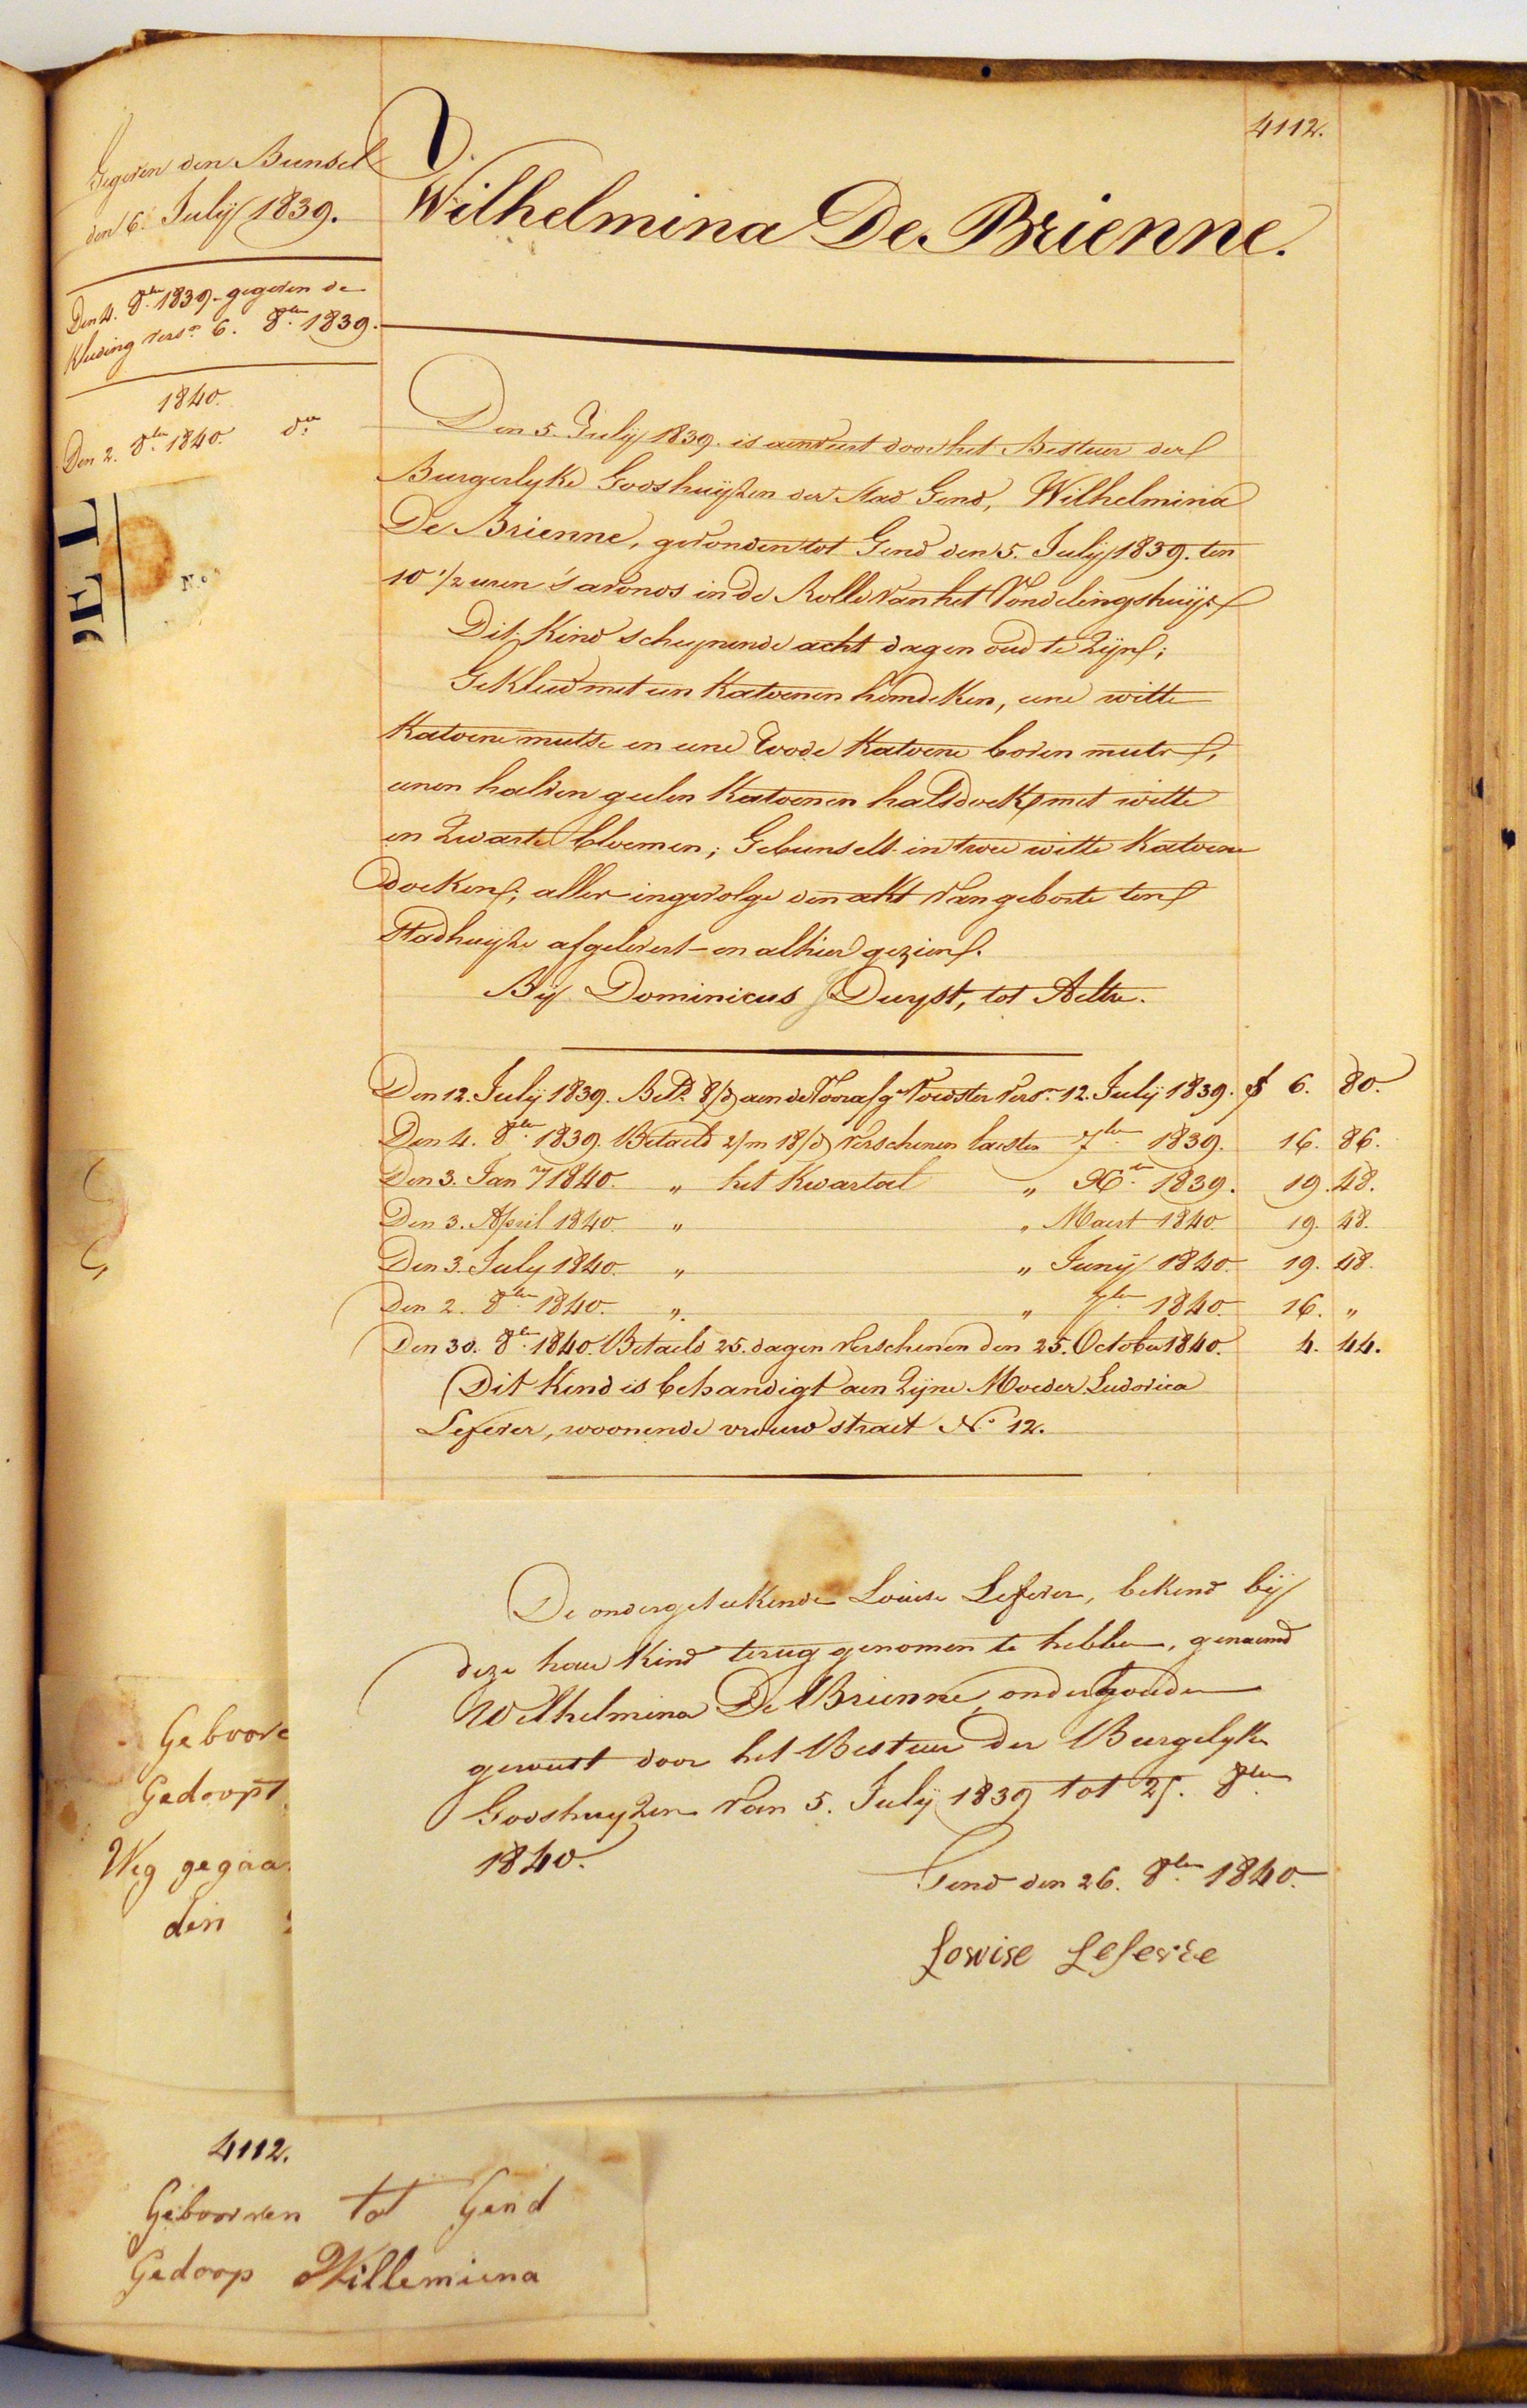 4112.
V.
Wilhelmina De Brienne.
Gegeven den Bunsel
den 6. July 1839.
Den 4. 8ber 1839 gegeven de
Kleeding versn. 6. 8ber 1839.
1840.
Den 2. 8ber 1840. do
DEL
No.
Den 5. July 1839. is aenveert door het Bestuer der
Burgerlyke Godshuyzen der Stad Gend, Wilhelmina
De Brienne, gevonden tot Gend den 5. July 1839. ten
10 1/2 uren 's avonds in de Rolle van het Vondelingshuys
Dit Kind schynende acht dagen oud te Zyn;
Gekleed met een Katoenen hemdeken, eene witte
Katoene mutse en eene roode Katoene boven muts,
eenen halven geelen Katoenen halsdoek met witte
en Zwarte bloemen; Gebunselt in twee witte Katoene
doeken; alles ingevolge den akt van geboorte ten
Stadhuyze afgelevert en alhier gezien.
By Dominicus Duyst, tot Aeltre.
Den 12. July 1839. Betd. 8/d aen de Voorafge Voedster versn. 12. July 1839. f 6. 80.
Den 4. 8ber 1839. Betaeld 2/m 18/d verschenen laesten 7ber 1839. 16. 86.
Den 3. Janry 1840. " het Kwartael " Xber 1839. 19. 48.
Den 3. April 1840 " " Maert 1840 19. 48.
Den 3. July 1840. " " Juny 1840. 19. 48.
Den 2. 8ber 1840. " " 7ber 1840. 16. "
Den 30. 8ber 1840. Betaeld 25. dagen verschenen den 25. October 1840. 4. 44.
Dit Kind is behandigt aen Zyne Moeder Ludovica
Lefever, woonende vrouw straet No. 12.
De ondergeteekende Louise Lefever, bekend by
deze haer Kind terug genomen te hebben, genaemd
Wilhelmina De Brienne, onderhouden
geweest door het Bestuer der Burgelyke
Godshuyzen van 5. July 1839 tot 25. 8ber
1840.
Gend den 26. 8ber 1840.
Lowise Lefevre
Geboore
Gedoopt
Weg gegaa
den
4112.
Geboorren tot Gend
Gedoop Willemiena